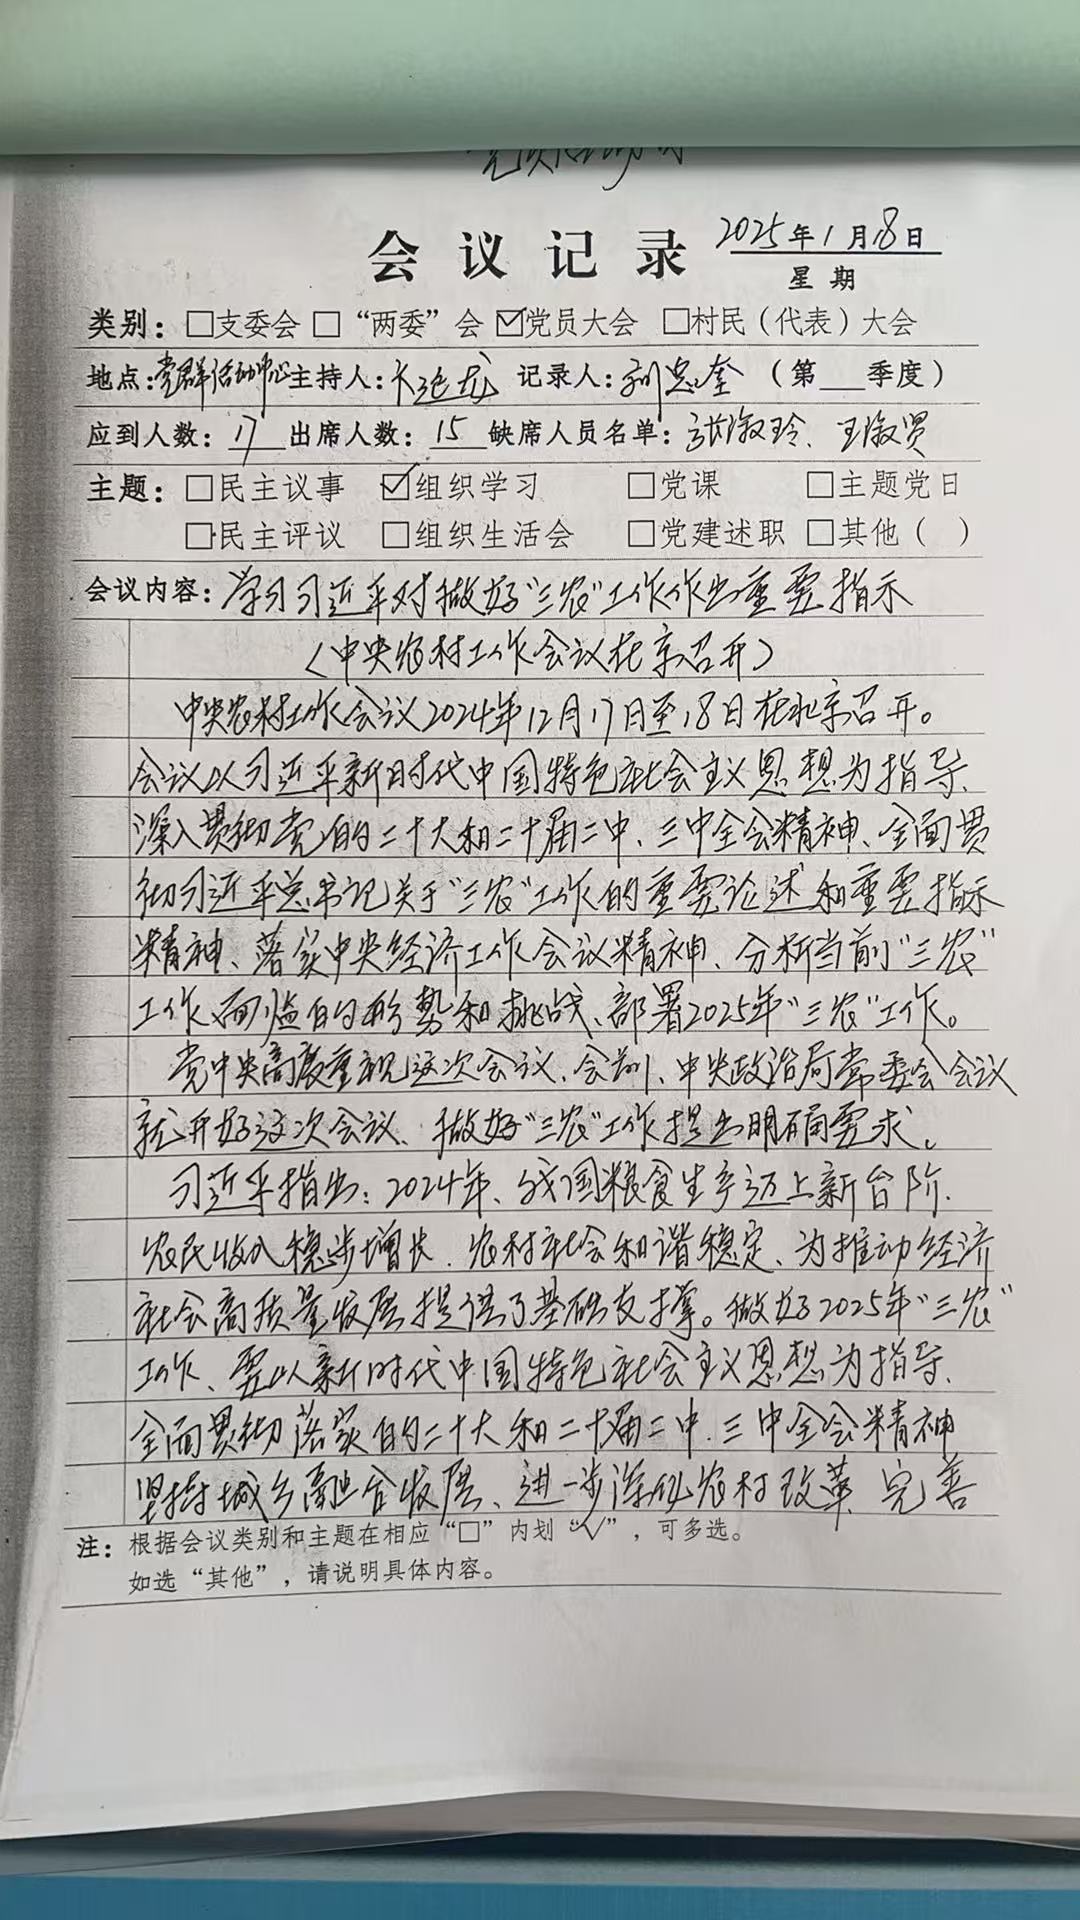 会议记录 2025年1月18日
星期
类别：□支委会 □“两委”会 ☑党员大会 □村民（代表）大会
地点：党群活动中心 主持人： 记录人：刘忠奎 （第 季度）
应到人数：17 出席人数：15 缺席人员名单：张淑玲、王淑贤
主题：□民主议事 ☑组织学习 □党课 □主题党日
□民主评议 □组织生活会 □党建述职 □其他（ ）
会议内容：学习习近平对做好“三农”工作作出重要指示
（中央农村工作会议在京召开）
中央农村工作会议2024年12月17日至18日在北京召开。
会议以习近平新时代中国特色社会主义思想为指导、
深入贯彻党的二十大和二十届二中、三中全会精神、全面贯
彻习近平总书记关于“三农”工作的重要论述和重要指示
精神、落实中央经济工作会议精神、分析当前“三农”
工作面临的形势和挑战、部署2025年“三农”工作。
党中央高度重视这次会议、会前、中央政治局常委会会议
就开好这次会议、做好“三农”工作提出明确要求。
习近平指出：2024年、我国粮食生产迈上新台阶、
农民收入稳步增长、农村社会和谐稳定、为推动经济
社会高质量发展提供了基础支撑。做好2025年“三农”
工作、要以新时代中国特色社会主义思想为指导、
全面贯彻落实的二十大和二十届二中、三中全会精神
坚持城乡融合发展、进一步深化农村改革、完善
注：根据会议类别和主题在相应“□”内划“√”，可多选。
如选“其他”，请说明具体内容。